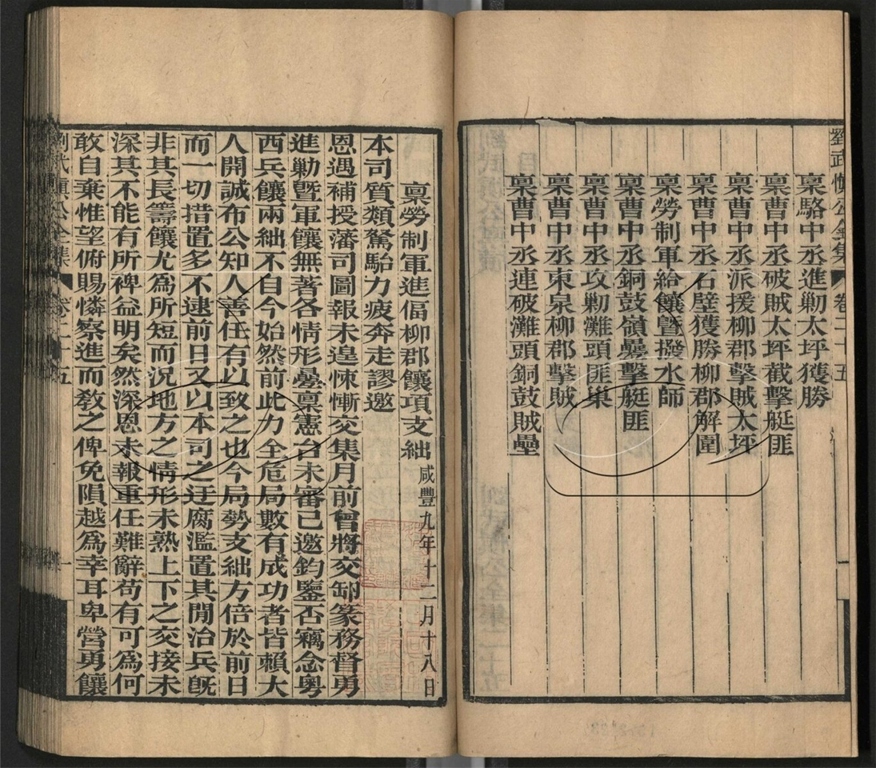 劉武慎公全集 卷二十五 一
稟駱中丞進勦太坪獲勝
稟曹中丞破賊太坪截擊艇匪
稟曹中丞派援柳郡擊賊太坪
稟曹中丞石壁獲勝柳郡解圍
稟勞制軍給饟曁撥水師
稟曹中丞銅鼓嶺曡擊艇匪
稟曹中丞攻勦灘頭匪巢
稟曹中丞東泉柳郡擊賊
稟曹中丞連破灘頭銅鼓賊壘
稟勞制軍進偪柳郡饟項支絀 咸豐九年十二月十八日
本司質類駑駘力疲奔走謬邀
恩遇補授藩司圖報未遑悚慚交集月前曾將交卸篆務督勇
進勦曁軍饟無著各情形曡稟憲台未審已邀鈞鑒否竊念粤
西兵饟兩絀不自今始然前此力全危局數有成功者皆賴大
人開誠布公知人善任有以致之也今局勢支絀方倍於前日
而一切措置多不逮前日又以本司之迂腐濫置其閒治兵旣
非其長籌饟尤爲所短而況地方之情形未熟上下之交接未
深其不能有所裨益明矣然深恩未報重任難辭苟有可爲何
敢自棄惟望俯賜憐察進而敎之俾免隕越爲幸耳卑營勇饟
劉武慎公全集 卷二十五 一